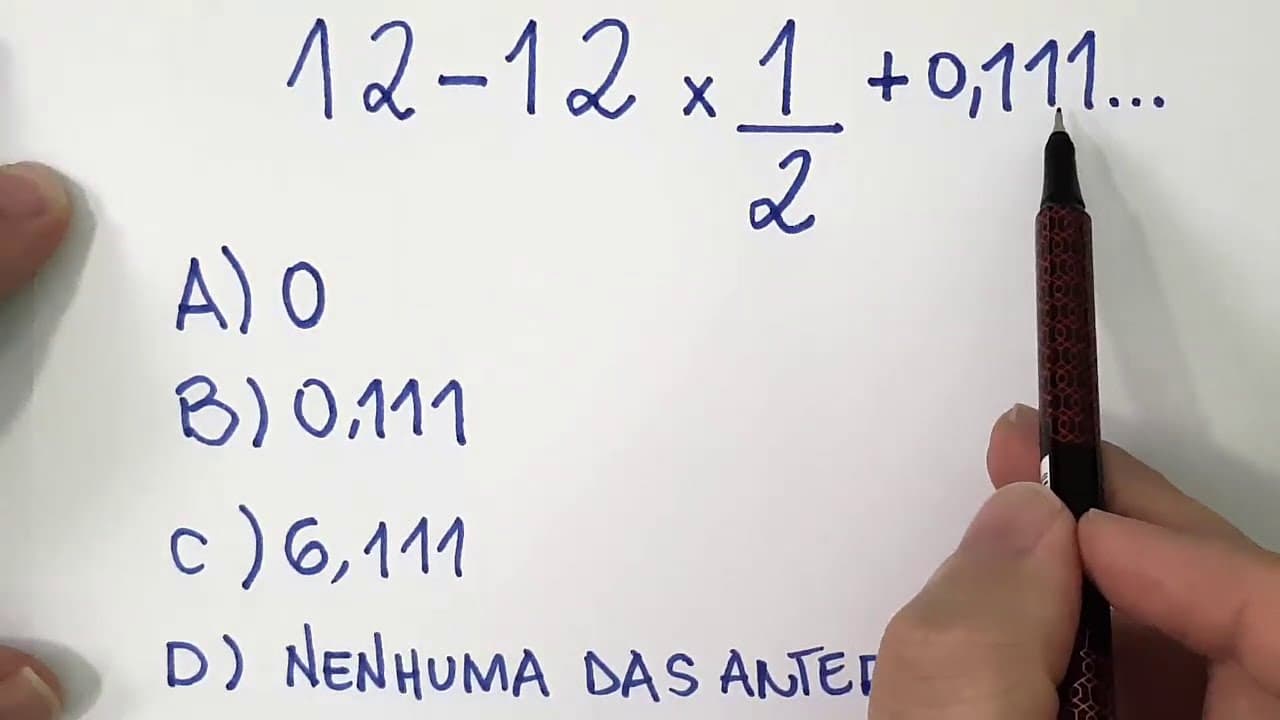 12 - 12 x 1/2 + 0,111...
A) 0
B) 0,111
C) 6,111
D) NENHUMA DAS